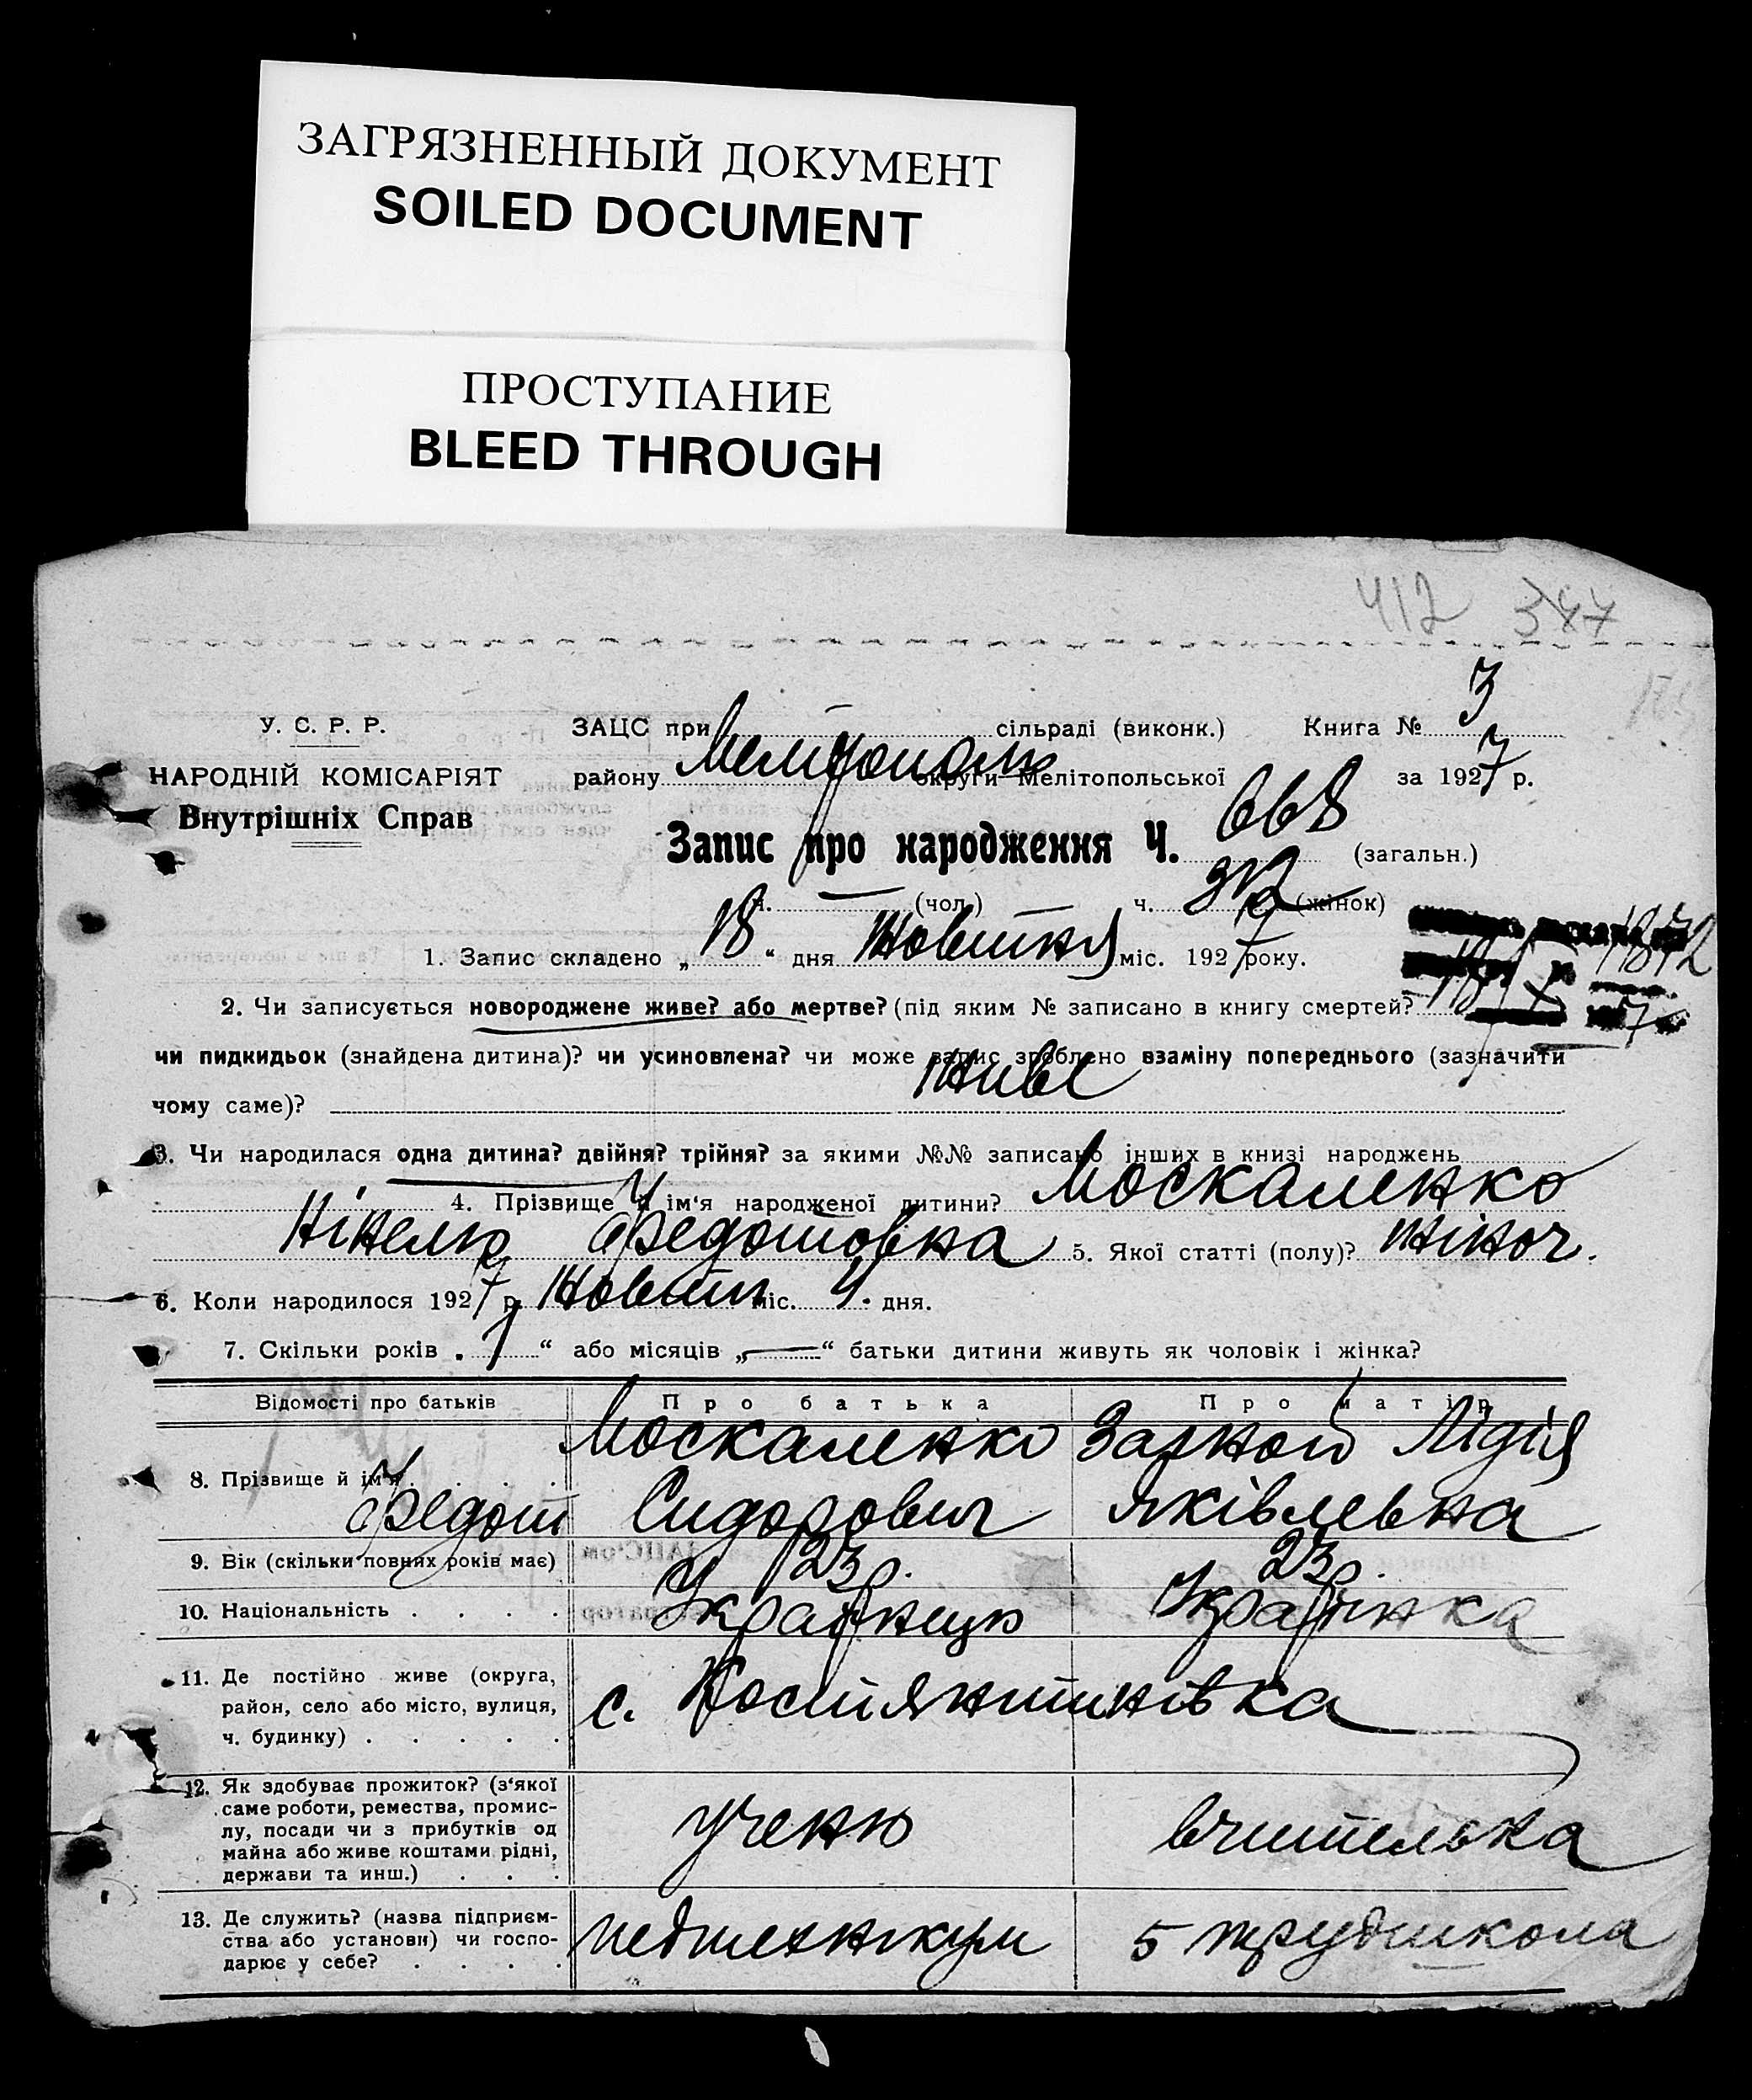 ЗАГРЯЗНЕННЫЙ ДОКУМЕНТ
SOILED DOCUMENT
ПРОСТУПАНИЕ
BLEED THROUGH
412 347
У. С. Р. Р. ЗАЦС при сільраді (виконк.) Книга № 3
НАРОДНІЙ КОМІСАРІЯТ району Мелітополь округи Мелітопольської за 1927 р.
Внутрішніх Справ
Запис про народження Ч. 668 (загальн.)
ч. — (чол.) ч. (жінок)
1. Запис складено „18“ дня Жовтня міс. 1927 року.
2. Чи записується новороджене живе? або мертве? (під яким № записано в книгу смертей?
чи пидкидьок (знайдена дитина)? чи усиновлена? чи може запис зроблено взаміну попереднього (зазначити
чому саме)? живе
3. Чи народилася одна дитина? двійня? трійня? за якими №№ записано інших в книзі народжень
4. Прізвище й ім‘я народженої дитини? Москаленко
Нінель Федотовна 5. Якої статті (полу)? жіноч.
6. Коли народилося 1927 р. Жовтн міс. 4 дня.
7. Скільки років „1“ або місяців „—“ батьки дитини живуть як чоловік і жінка?
Відомості про батьків Про батька Про матір
Москаленко Лідія
8. Прізвище й ім‘я
Федот Сидорович Яківлевна
9. Вік (скільки повних років має) 23 р. 23 р.
10. Національність Українець Українка
11. Де постійно живе (округа,
район, село або місто, вулиця, с. Костянтинівка
ч. будинку)
12. Як здобуває прожиток? (з‘якої
саме роботи, ремества, промис-
лу, посади чи з прибутків од учень вчителька
майна або живе коштами рідні,
держави та инш.)
13. Де служить? (назва підприєм-
ства або установи) чи госпо- педтехникум 5 трудшкола
дарює у себе?